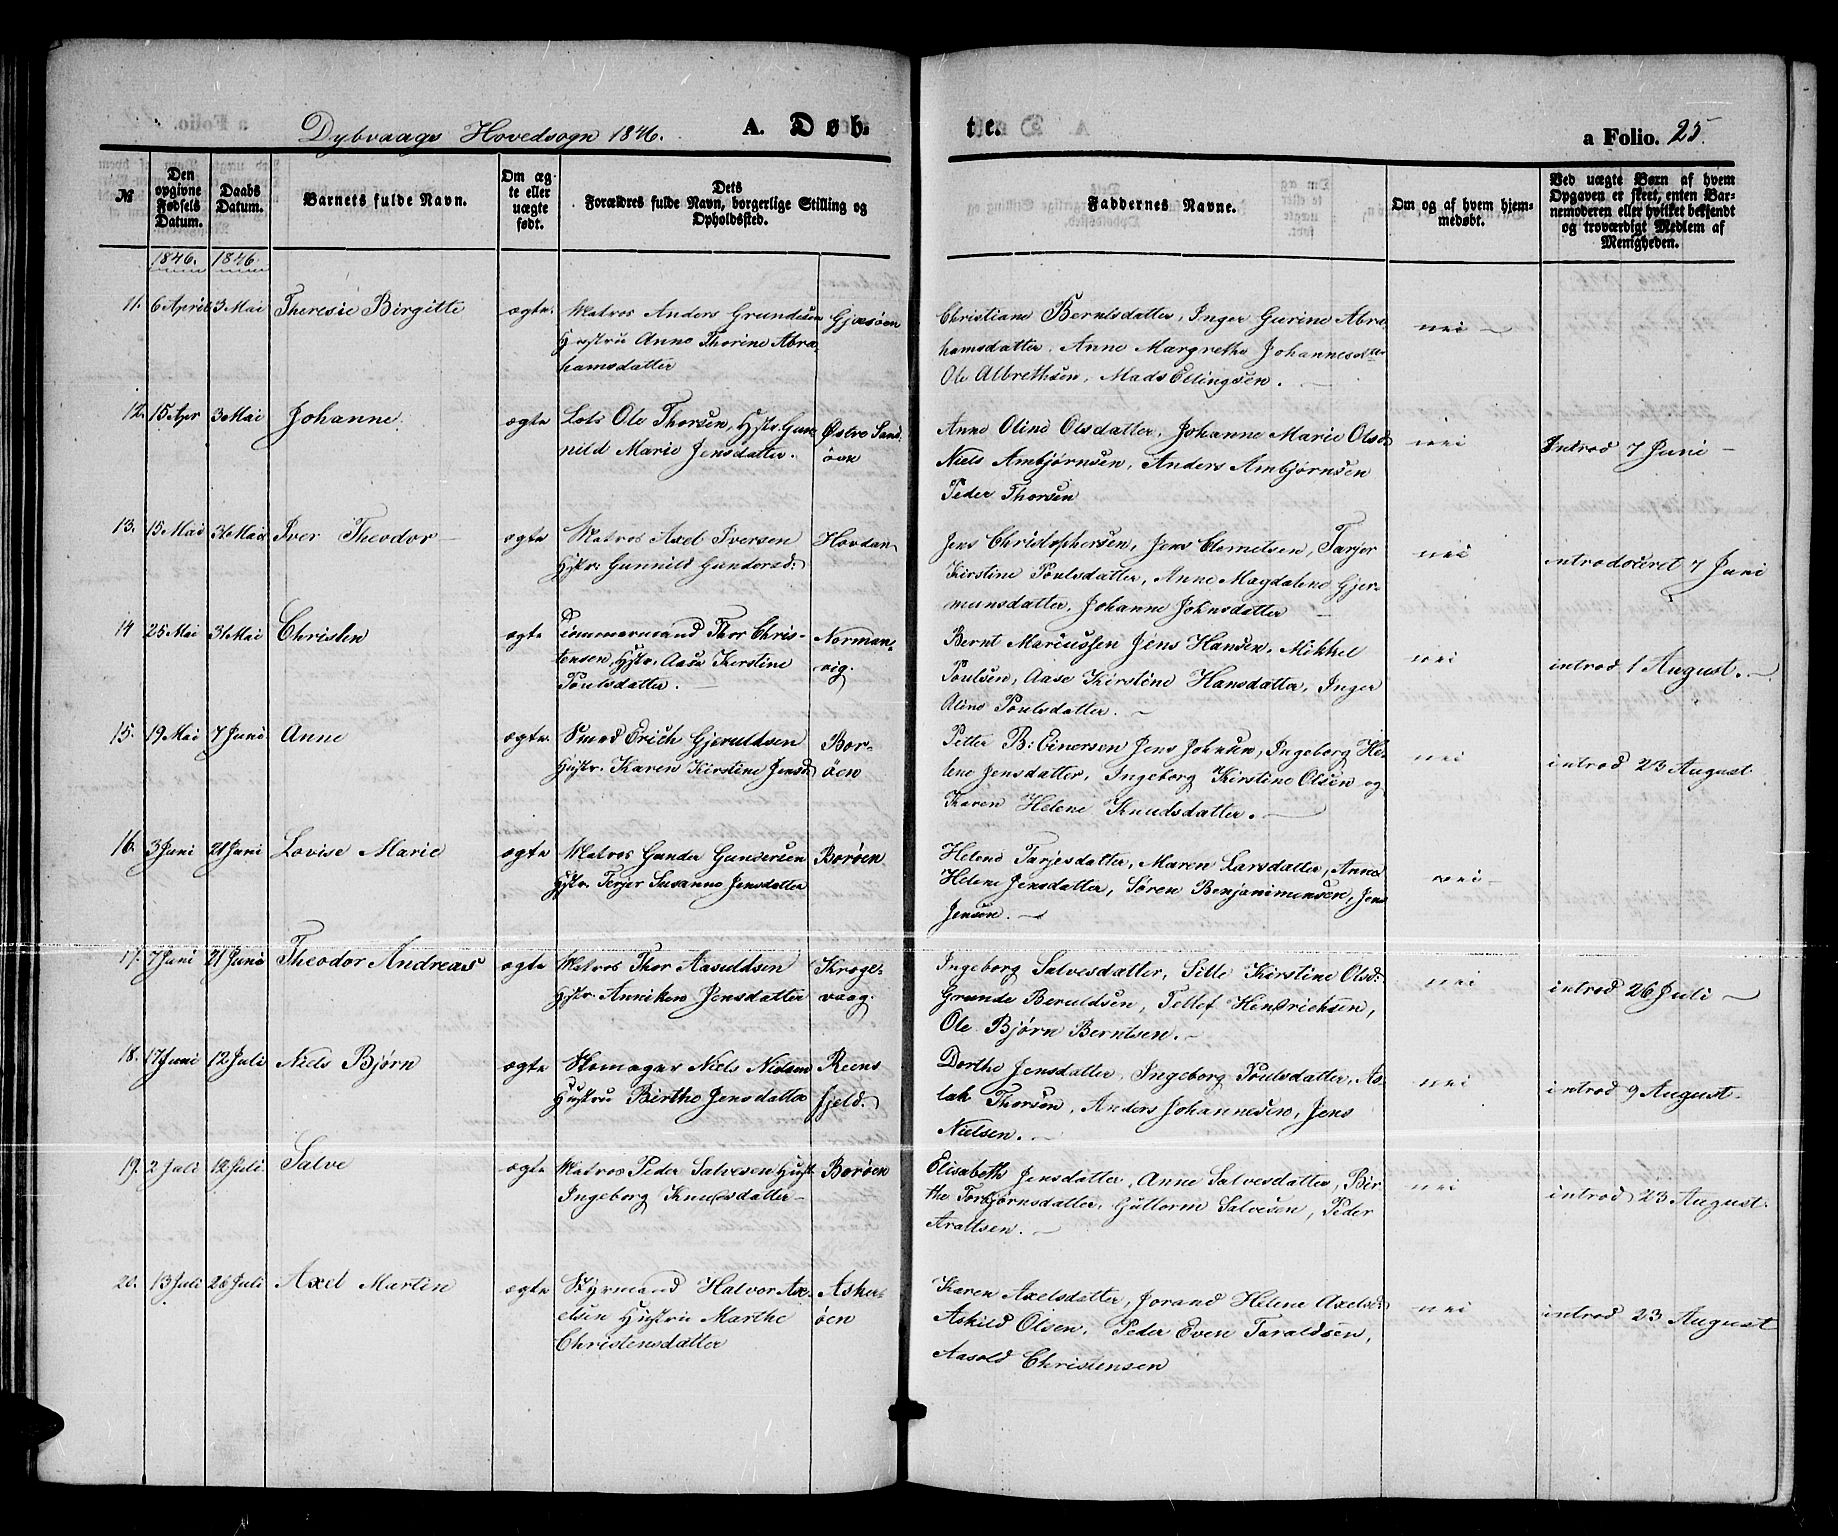 Dybvaags Hovedsogn 1846. A. Døb- te. a Folio. 25.
№ Den opgivne Fødsels Datum. Daabs Datum. Barnets fulde Navn. Om ægte eller uægte født. Dets Forældres fulde Navn, borgerlige Stilling og Opholdssted. Faddernes Navne. Om og af hvem hjemmedøbt. Ved uægte Børn af hvem Opgaven er skeet, enten Barnemoderen eller hvilket bekjendt og troværdigt Medlem af Menigheden.
1846. 1846.
11. 6 April 3 Mai Theresie Birgitte ægte. Matros Anders Grundesen Gjæsøen Christiane Berntsdatter, Inger Gurine Abra-
Hustru Anne Thorine Abra- hamsdatter, Anne Margrethe Johannesd nei —
hamsdatter Ole Albrethsen, Mads Ellingsen. —
12. 15 Apr 3 Mai Johanne. ægte Lots Ole Thorsen, Hstr. Gun- Østre Sand- Anne Oline Olsdatter, Johanne Marie Olsd nei Introd 7 Juni —
nild Marie Jensdatter. øen Niels Ambjørnsen, Anders Ambjørnsen
Peder Thorsen
13. 15 Mai 31 Mai Iver Theodor — ægte Matros Axel Iversen Hovdan Jens Christophersen, Jens Clemetsen, Tarjer nei introduceret 7 Juni
Hstr: Gunnild Gundersd: Kirstine Poulsdatter, Anne Magdalene Gjer-
munsdatter, Johanne Johnsdatter —
14 25 Mai 31 Mai Christen ægte Tømmermand Thor Chris- Norman- Bernt Mariussen Jens Hansen, Mikkel nei introd 1 August. —
tensen, Hstr. Aase Kirstine vig. Poulsen, Aase Kirstine Hansdatter, Inger
Poulsdatter. — Aline Poulsdatter. —
15. 19 Mai 7 Juni Anne ægte. Smed Erich Gjeruldsen Bor- Petter B: Einersen Jens Johnsen, Ingeborg He- nei introd 23 August
Hustr. Karen Kirstine Jensd øen lene Jensdatter, Ingeborg Kirstine Olsen og
Karen Helene Knudsdatter. —
16. 3 Juni 21 Juni Lovise Marie ægte Matros Gunder Gundersen Borøen Helene Tarjesdatter, Maren Larsdatter, Anne nei —
Hstr. Terjer Susanne Jensdatter Helene Jensdatter, Søren Benjaminsen, Jens
Jensen. —
17. 7 Juni 21 Juni Theodor Andreas ægte Matros Thor Aasuldsen Kroge- Ingeborg Salvesdatter, Sille Kirstine Olsd: nei introd 26 Juli —
Hstr. Anniken Jensdatter vaag. Grunde Beruldsen, Tellef Hendrichsen,
Ole Bjørn Berntsen. —
18. 17 Juni 12 Juli Niels Bjørn ægte Skomager Niels Nielsen Reens- Dorthe Jensdatter, Ingeborg Poulsdatter, As- nei introd 9 August.
Hustru Birthe Jensdatter fjeld. lak Thorsen, Anders Johannesen, Jens
Nielsen. —
19. 2 Juli 12 Juli. Salve ægte Matros Peder Salvesen Hust. Borøen Elisabeth Jensdatter, Anne Salvesdatter, Bir- nei introd 23 August.
Ingeborg Knudsdatter — the Torbjørnsdatter, Guttorm Salvesen, Peder
Araltsen. —
20. 13 Juli 26 Juli Axel Martin ægte Styrmand Halvor Ax- Asker- Karen Axelsdatter, Jorand Helene Axelsd: nei introd 23 August
elsen Hustru Marthe øen Askild Olsen, Peder Even Taraldsen,
Christensdatter Aasold Christensen